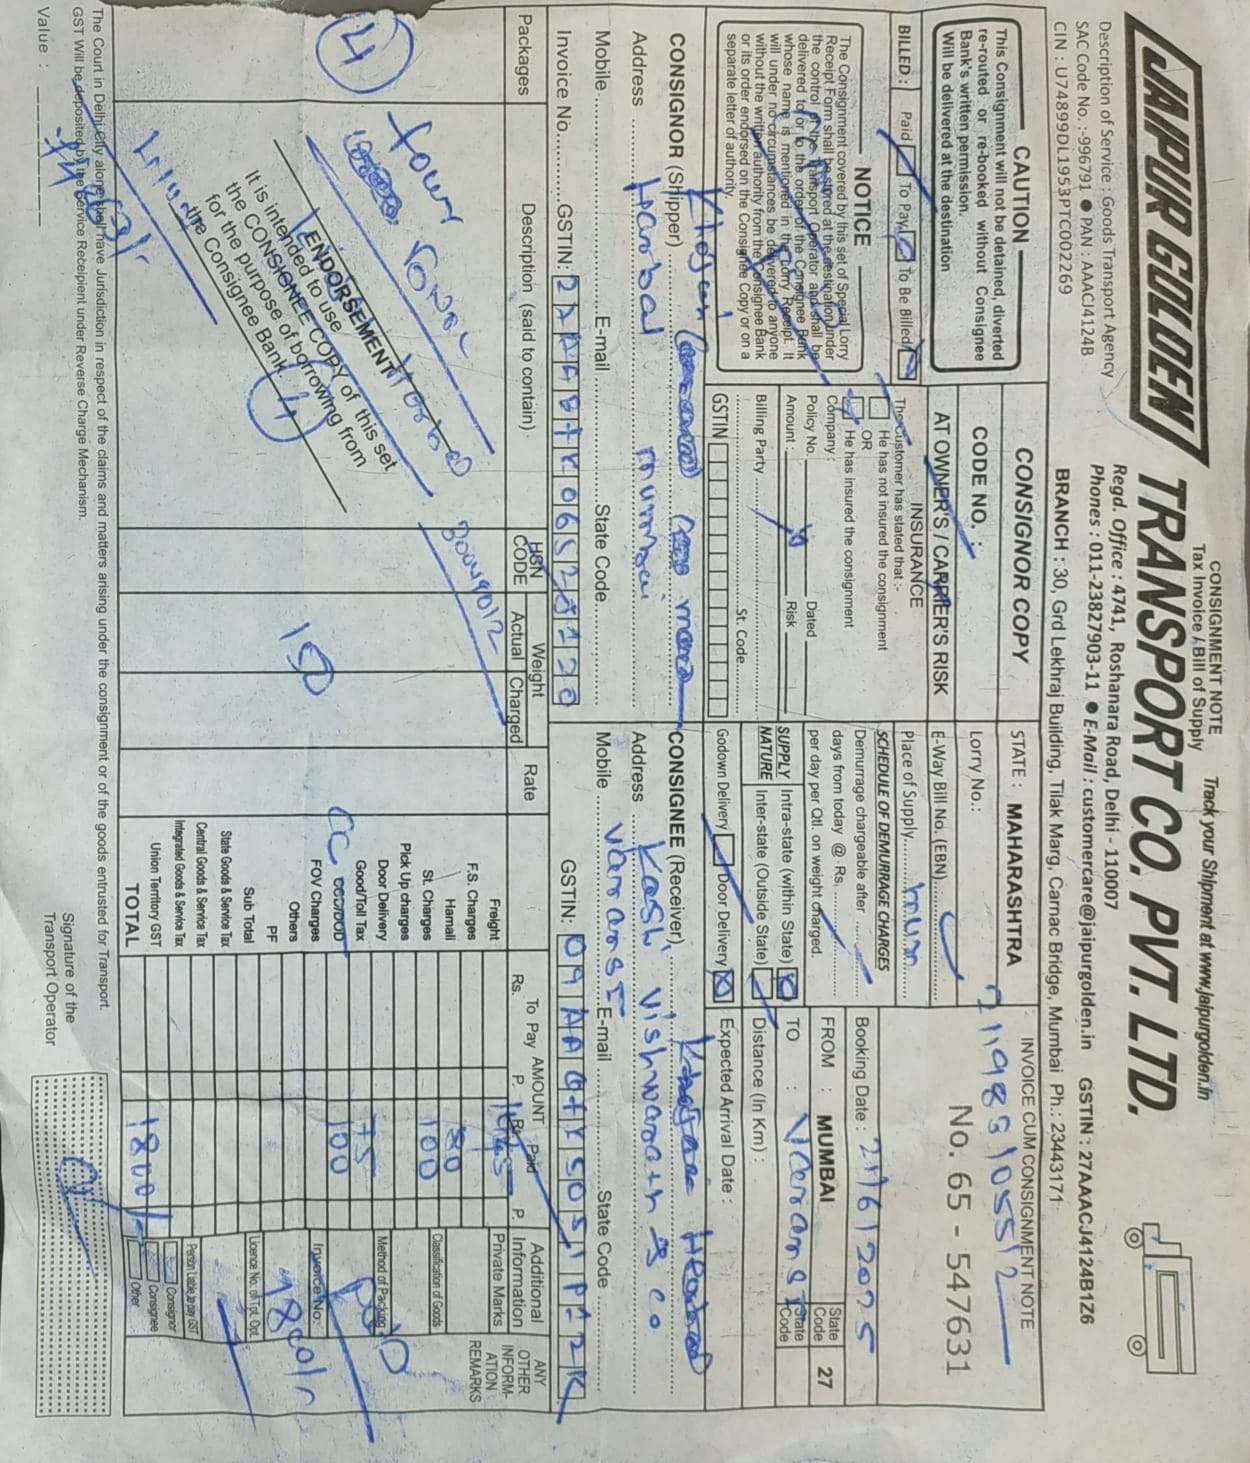 CONSIGNMENT NOTE
Tax Invoice / Bill of Supply
Track your Shipment at www.jaipurgolden.in
JAIPUR GOLDEN TRANSPORT CO. PVT. LTD.
Description of Service : Goods Transport Agency
SAC Code No. :-996791 ● PAN : AAACJ4124B
CIN : U74899DL1953PTC002269
Regd. Office : 4741, Roshanara Road, Delhi - 110007
Phones : 011-23827903-11 ● E-Mail : customercare@jaipurgolden.in
GSTIN : 27AAACJ4124B1Z6
BRANCH : 30, Grd Lekhraj Building, Tilak Marg, Carnac Bridge, Mumbai Ph.: 23443171
CAUTION
This Consignment will not be detained, diverted
re-routed or re-booked without Consignee
Bank's written permission.
Will be delivered at the destination
CONSIGNOR COPY
CODE NO. :
AT OWNER'S / CARRIER'S RISK
STATE : MAHARASHTRA
Lorry No.:
E-Way Bill No. (EBN)
INVOICE CUM CONSIGNMENT NOTE
No. 65 - 547631
BILLED : Paid To Pay To Be Billed
NOTICE
The Consignment covered by this set of Special Lorry
Receipt Form shall be stored at the destination under
the control of the Transport Operator and shall be
delivered to or to the order of the Consignee Bank
whose name is mentioned in the Lorry Receipt. It
will under no circumstances be delivered to anyone
without the written authority from the Consignee Bank
or its order endorsed on the Consignee Copy or on a
separate letter of authority.
INSURANCE
The Customer has stated that :-
He has not insured the consignment
OR
He has insured the consignment
Company :
Policy No. Dated
Amount : Risk
Billing Party
St. Code
GSTIN
Place of Supply mum
SCHEDULE OF DEMURRAGE CHARGES
Demurrage chargeable after
days from today @ Rs.
per day per Qtl. on weight charged.
SUPPLY NATURE
Intra-state (within State)
Inter-state (Outside State)
Godown Delivery Door Delivery
Booking Date : 21/6/2025
FROM : MUMBAI State Code 27
TO : State Code
Distance (In Km) :
Expected Arrival Date :
CONSIGNOR (Shipper)
Address mumbai
Mobile E-mail State Code
Invoice No. GSTIN:
CONSIGNEE (Receiver)
Address Kashi Vishwanath & Co
Varanasi
Mobile E-mail State Code
GSTIN:
Packages
Description (said to contain)
HSN CODE
Weight
Actual Charged
Rate
AMOUNT
To Pay Paid
Rs. P. Rs. P.
Additional Information
Private Marks
ANY OTHER INFORM-ATION REMARKS
4
four
30049012
150
ENDORSEMENT
It is intended to use
the CONSIGNEE COPY of this set
for the purpose of borrowing from
the Consignee Bank.
4
Freight 1445
F.S. Charges
Hamali 80
St. Charges 100
Pick Up charges
Door Delivery
Good/Toll Tax 75
CCC/DOD CC
FOV Charges 100
Others
PF
Sub Total
State Goods & Service Tax
Central Goods & Service Tax
Integrated Goods & Service Tax
Union Territory GST
TOTAL 1800/-
Classification of Goods
Method of Packing
PAID
Invoice No.
Licence No. of Tpt. Opt.
Person Liable to pay GST
Consignor
Consignee
Other
The Court in Delhi City alone shall have Jurisdiction in respect of the claims and matters arising under the consignment or of the goods entrusted for Transport.
GST Will be deposited by the Service Receipient under Reverse Charge Mechanism.
Value :
Signature of the
Transport Operator